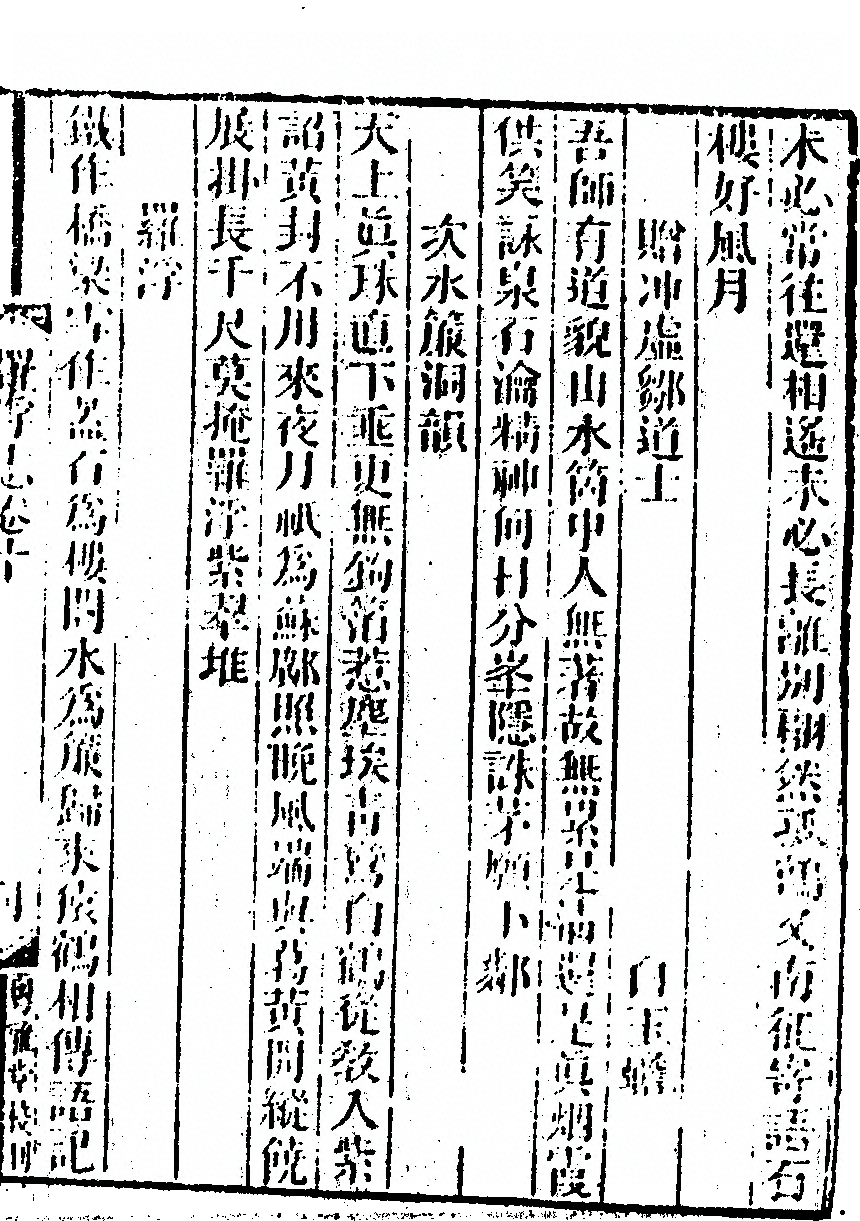 未必常往還相遙未必長離別翻然孤鶴又南征寄語石
樓好風月
贈冲虛鄒道士
白玉蟾
吾師有道貌山水箇中人無著故無累是淸還是眞烟霞
供笑詠泉石瀹精神何日分峯隱誅茅願卜鄰
次水簾洞韻
天上眞珠直下垂更無鉤箔惹塵埃靑鸞白鶴從敎入紫
詔黃封不用來夜月祇爲蘇鄧照晚風端與葛黃開縱饒
展掛長千尺莫掩羅浮紫翠堆
羅浮
鐵作橋梁雪作盆石爲樓閣水爲簾歸來猿鶴相傳語記
羅浮志卷十